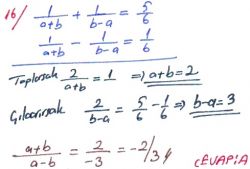 16/ 1/(a+b) + 1/(b-a) = 5/6
1/(a+b) - 1/(b-a) = 1/6
Toplarsak 2/(a+b) = 1 ⇒ a+b=2
Çıkarırsak 2/(b-a) = 5/6 - 1/6 ⇒ b-a=3
(a+b)/(a-b) = 2/-3 = -2/3
CEVAP:A